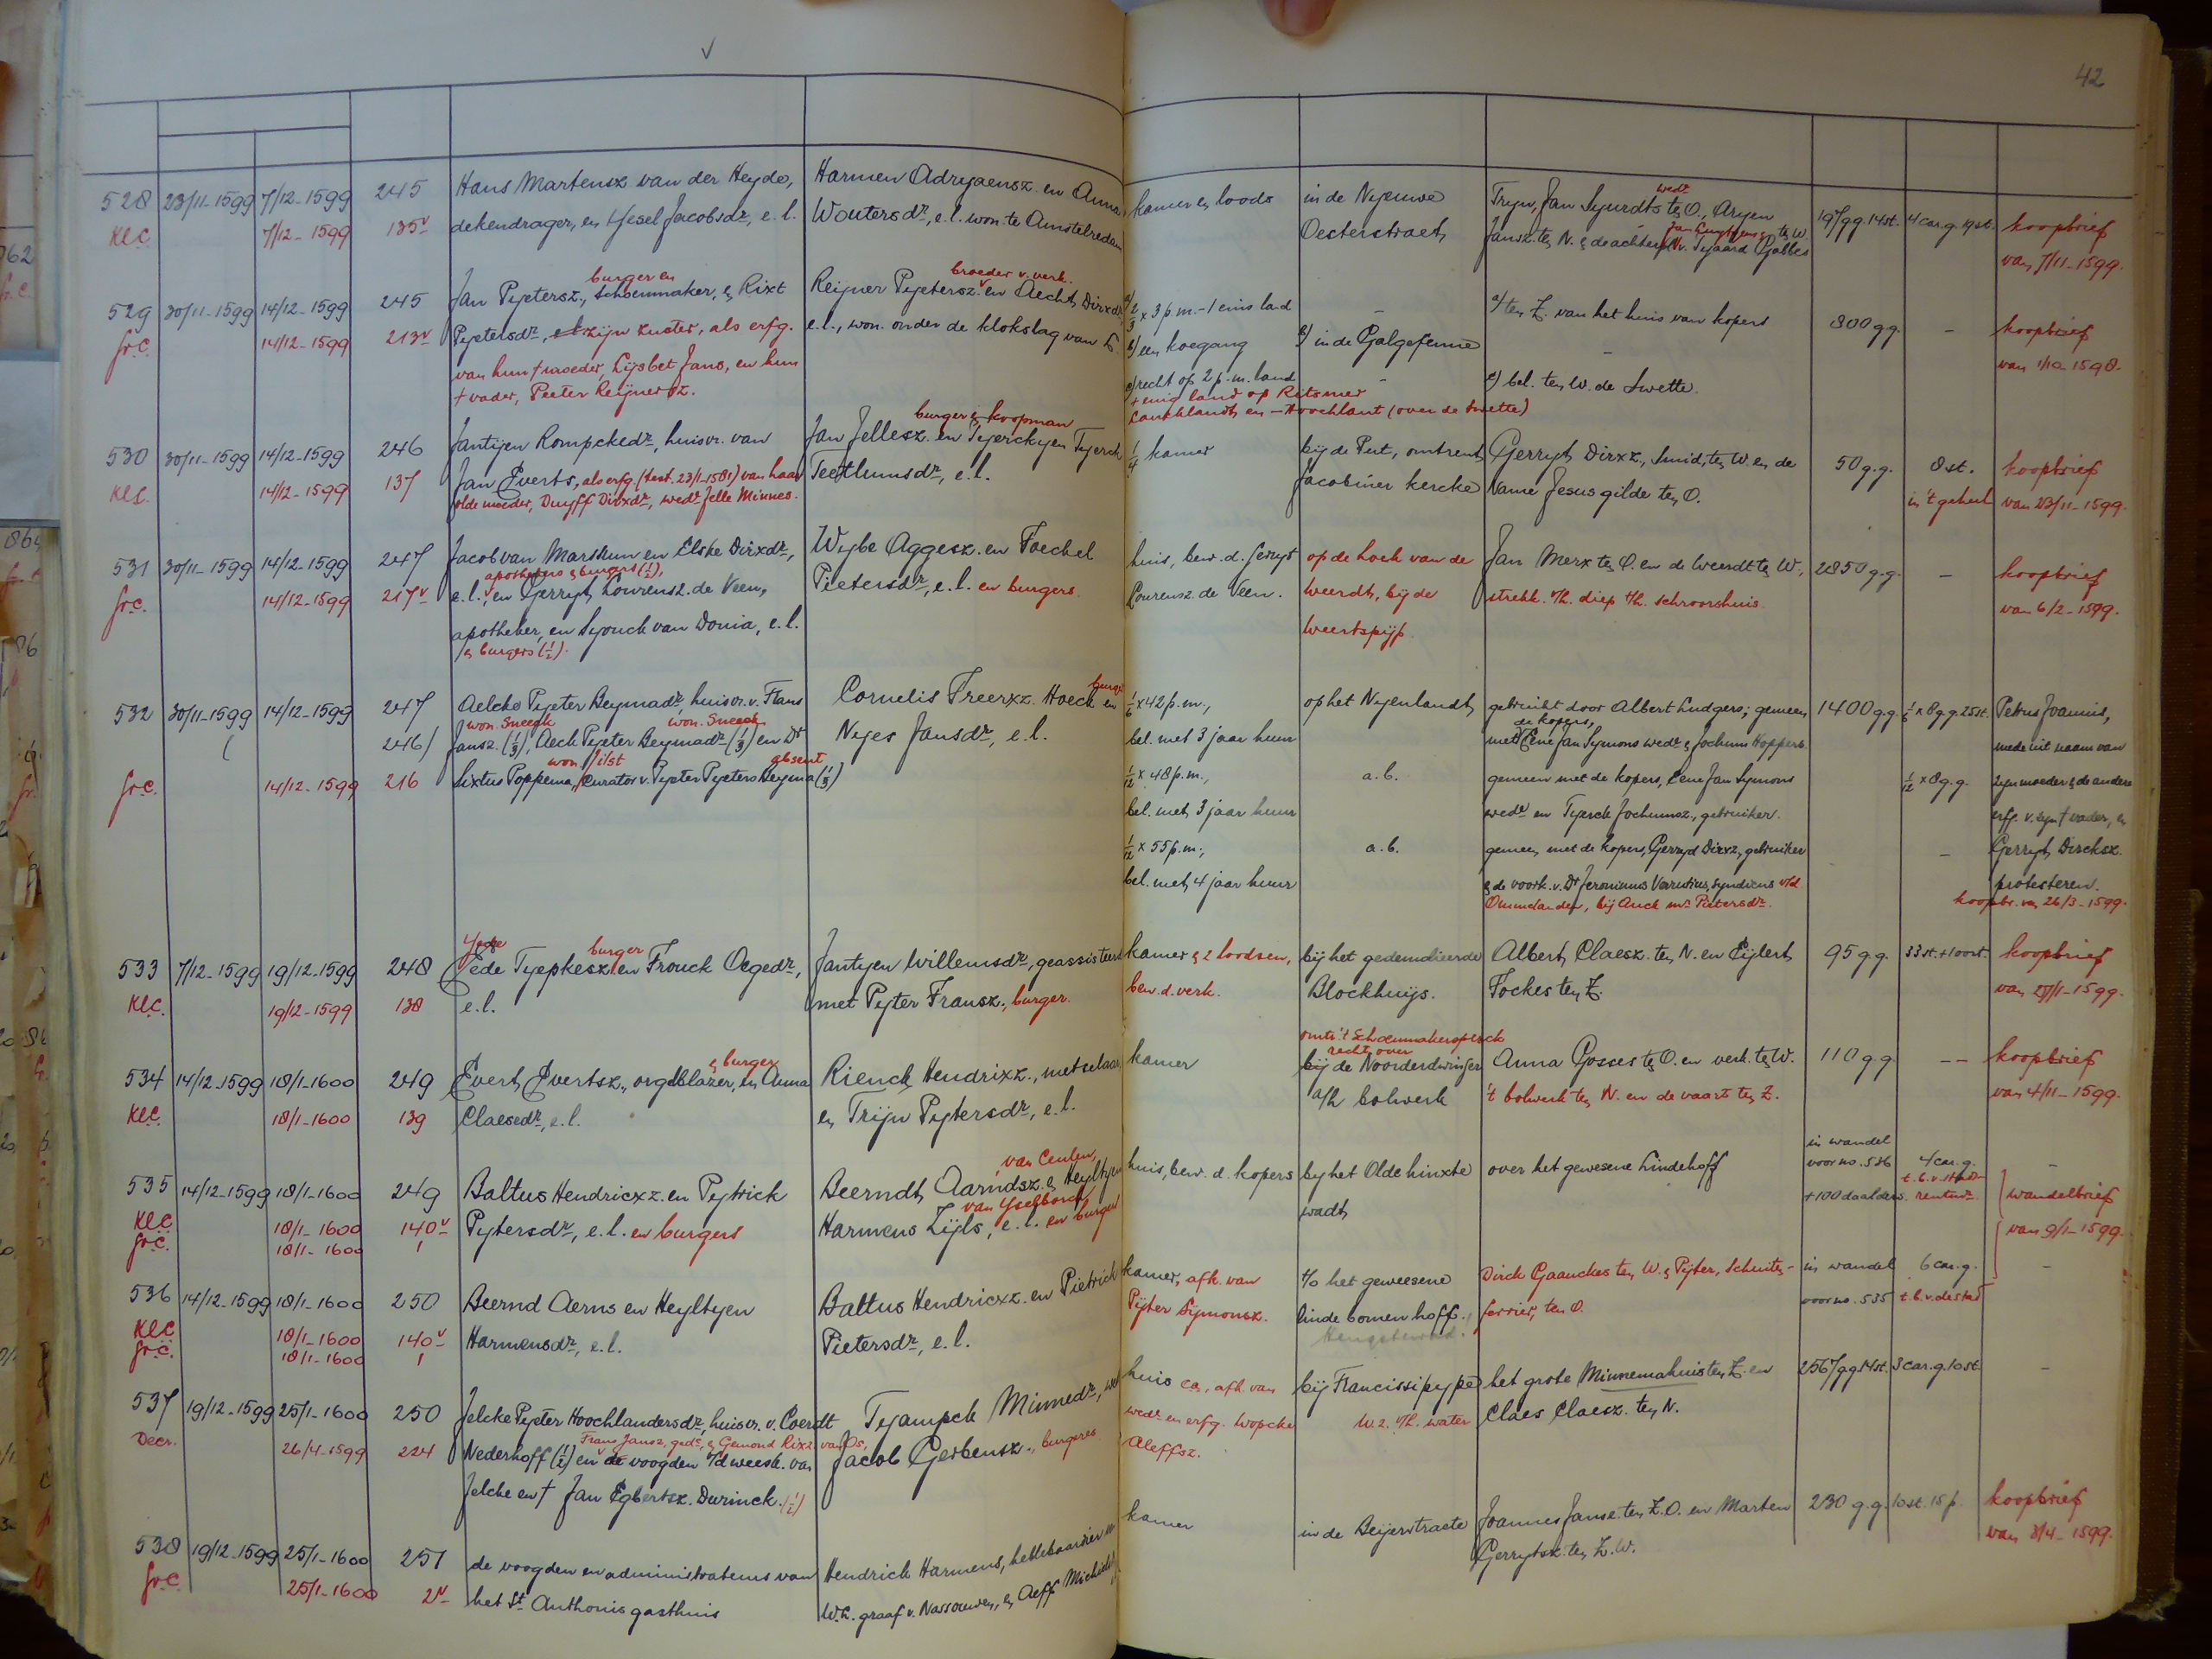 42
528 23/11-1599 7/12-1599 245 Hans Martensz van der Heyde, Harmen Adryaensz. en Anna kamer & loods in de Nyeuwe Tryn, Jan Sjurdts wedr ten O., Aryen 197 gg. 14 st. 4 car. g. 19 st. koopbrief
Kl.C. 7/12-1599 135v dekendrager, en Hesel Jacobsdr, e.l. Woutersdr, e.l. won. te Amstelredam Oesterstraet Jansz. ten N. & de achter van 7/11-1599.
529 30/11-1599 14/12-1599 245 Jan Pyetersz., burger en schoenmaker, & Rixt Reijner Pyetersz. broeder v. verk. en Aecht Dirxdr a) 2/3 x 3 p.m. - 1 eins land - a) ten Z. van het huis van kopers 800 gg. - koopbrief
Gr.C. 14/12-1599 213v Pyetersdr, zijn zuster, als erfg. e.l., won. onder de klokslag van b) een koegang b) in de Galgefenne - van 1/10-1598.
van hun † moeder, Lijsbet Jans, en hun c) recht op 2 p.m. land - c) bel. ten W. de Swette.
† vader, Peeter Reijnersz. + enig land op Ritsmer
en - Hoochlant (over de Swette)
530 30/11-1599 14/12-1599 246 Jantijen Rompckedr, huisvr. van Jan Jellesz. burger & koopman en Tyerckyen Tyerck 1/4 kamer bij de Put, omtrent Gerryt Dirxz, smid, ten W. en de 50 g.g. 8 st. koopbrief
Kl.C. 14/12-1599 137 Jan Everts, als erfg. (test. 23/1-1581) van haar Teetlumsdr, e.l. Jacobiner kercke Name Jesus gilde ten O. in 't geheel van 23/11-1599.
olde moeder, Duyff Dirxdr, wedr Jelle Minnes.
531 30/11-1599 14/12-1599 247 Jacob van Marssum en Elske Dirxdr, Wybe Aggesz. en Foechel huis, bew. d. Gerryt op de hoek van de Jan Merx ten O. en de Weerdt ten W., 2850 g.g. - koopbrief
Gr.C. 14/12-1599 217v e.l., apothekers & burgers (1/2), en Gerryt Lourensz. de Veen, Pietersdr, e.l. en burgers. Lourensz. de Veen. Weerdt, bij de strekk. t/h. diep t/h. schroorshuis. van 6/2-1599.
apotheker, en Syouck van Donia, e.l. Weertspijp.
& burgers (1/2).
532 30/11-1599 14/12-1599 247 Aelcke Pyeter Beymadr, huisvr. v. Frans Cornelis Freerxz. Hoeck burger en 1/6 x 42 p.m., op het Nyenlandt gebruikt door Albert Ludgers; gemeen 1400 g.g. 1/6 x 8 g.g. 25 st. Petrus Joannis,
246/ Jansz. won. Sneeck (1/3), Aech Pyeter Beymadr won. Sneeck (1/3) en Dr Nyes Jansdr, e.l. bel. met 3 jaar huur met de kopers, Eene Jan Symons wedr & Jochum Hoppers. mede uit naam van
Gr.C. 14/12-1599 216 Sixtus Poppema, won. Ylst curator v. Pyeter Pyeters Beyma absent (1/3) 1/12 x 48 p.m., a.b. gemeen met de kopers, Eene Jan Symons 1/12 x 8 g.g. zyn moeder & de andere
bel. met 3 jaar huur wedr en Tyerck Jochumsz., gebruiker. erfg. v. zyn † vader, &
1/12 x 55 p.m., a.b. gemeen met de kopers, Gerryt Dirxz, gebruiker - Gerryt Dircksz.
bel. met 4 jaar huur & de voork. v. Dr Jeronimus Verrutius, Syndicus v/d. protesteren.
Ommelanden, bij Auck mr Pietersdr. koopbr. van 26/3-1599.
533 7/12-1599 19/12-1599 248 Eede Tyepkesz burger en Frouck Oegedr, Jantyen Willemsdr, geassisteerd kamer & 2 loodsen, bij het gedemolieerde Albert Claesz. ten N. en Eijlert 95 g.g. 33 st. + 1 oort. koopbrief
Kl.C. 19/12-1599 138 e.l. met Pyter Fransz., burger. bew. d. verk. Blockhuys. Fockes ten Z.
534 14/12-1599 18/1-1600 249 Evert Evertsz., orgelblazer, & burger en Anna Rienck Hendrixz., metselaar kamer omtr. 't Schoenmakersperck recht over bij de Noorderdwinger Anna Gosses ten O. en verk. ten W. 110 g.g. -- koopbrief
Kl.C. 18/1-1600 139 Claesdr, e.l. en Trijn Pytersdr, e.l. a/h bolwerk 't bolwerk ten N. en de vaart ten Z. van 4/11-1599.
535 14/12-1599 18/1-1600 249 Baltus Hendricxz. en Pytrick Beerndt Aarndsz. van Ceulen, & Heyltyen huis, bew. d. kopers by het Olde hinxte over het gewesene Lindehoff in wandel voor no. 536 4 car. g. -
Kl.C. 18/1-1600 140v Pytersdr, e.l. en burgers Harmens Zijls, van Yselborch, e.l. en burgers wadt + 100 daalders. wandelbrief
Gr.C. 18/1-1600 1 van 9/1-1599.
536 14/12-1599 18/1-1600 250 Beernd Aerns en Heyltyen Baltus Hendricxz. en Pietrick kamer, afk. van t/o het geweesene Dirck Gaauckes ten W. & Pyter, Schuite- in wandel 6 car. g. -
Kl.C. 18/1-1600 140v Harmensdr, e.l. Pietersdr, e.l. Pyter Symonsz. linde bomen hoff. ferrier, ten O. voor no. 535 t.b.v. de stad
Gr.C. 18/1-1600 1
537 19/12-1599 25/1-1600 250 Jelcke Pyeter Hoochlandersdr, huisvr. v. Coerdt Tyampck Minnedr, wedr huis ca., afk. van bij Francissipypе het grote Minnemahuis ten Z. en 2567 gg 14 st. 3 car. g. 10 st. -
Decr. 26/4-1599 224 Nederhoff (1/2) en de voogden v/d weesk. van Jacob Gerbensz., burgeres. wedr en erfg. Wopcke W.z. t/h. water Claes Claesz. ten N.
Jelcke en † Jan Egbertsz. Durinck. (1/2) Aleffsz.
538 19/12-1599 25/1-1600 251 de voogden en administrateurs van Hendrick Harmens, hellebaardier kamer in de Beijerstraete Joannes Janse. ten Z.O. en Marten 230 g.g. 10 st. 15 p. koopbrief
Gr.C. 25/1-1600 2v het St Anthonis gasthuis W.L. graaf v. Nassouwen, & Aeff Gerrytsz. ten Z.W. van 8/4-1599.